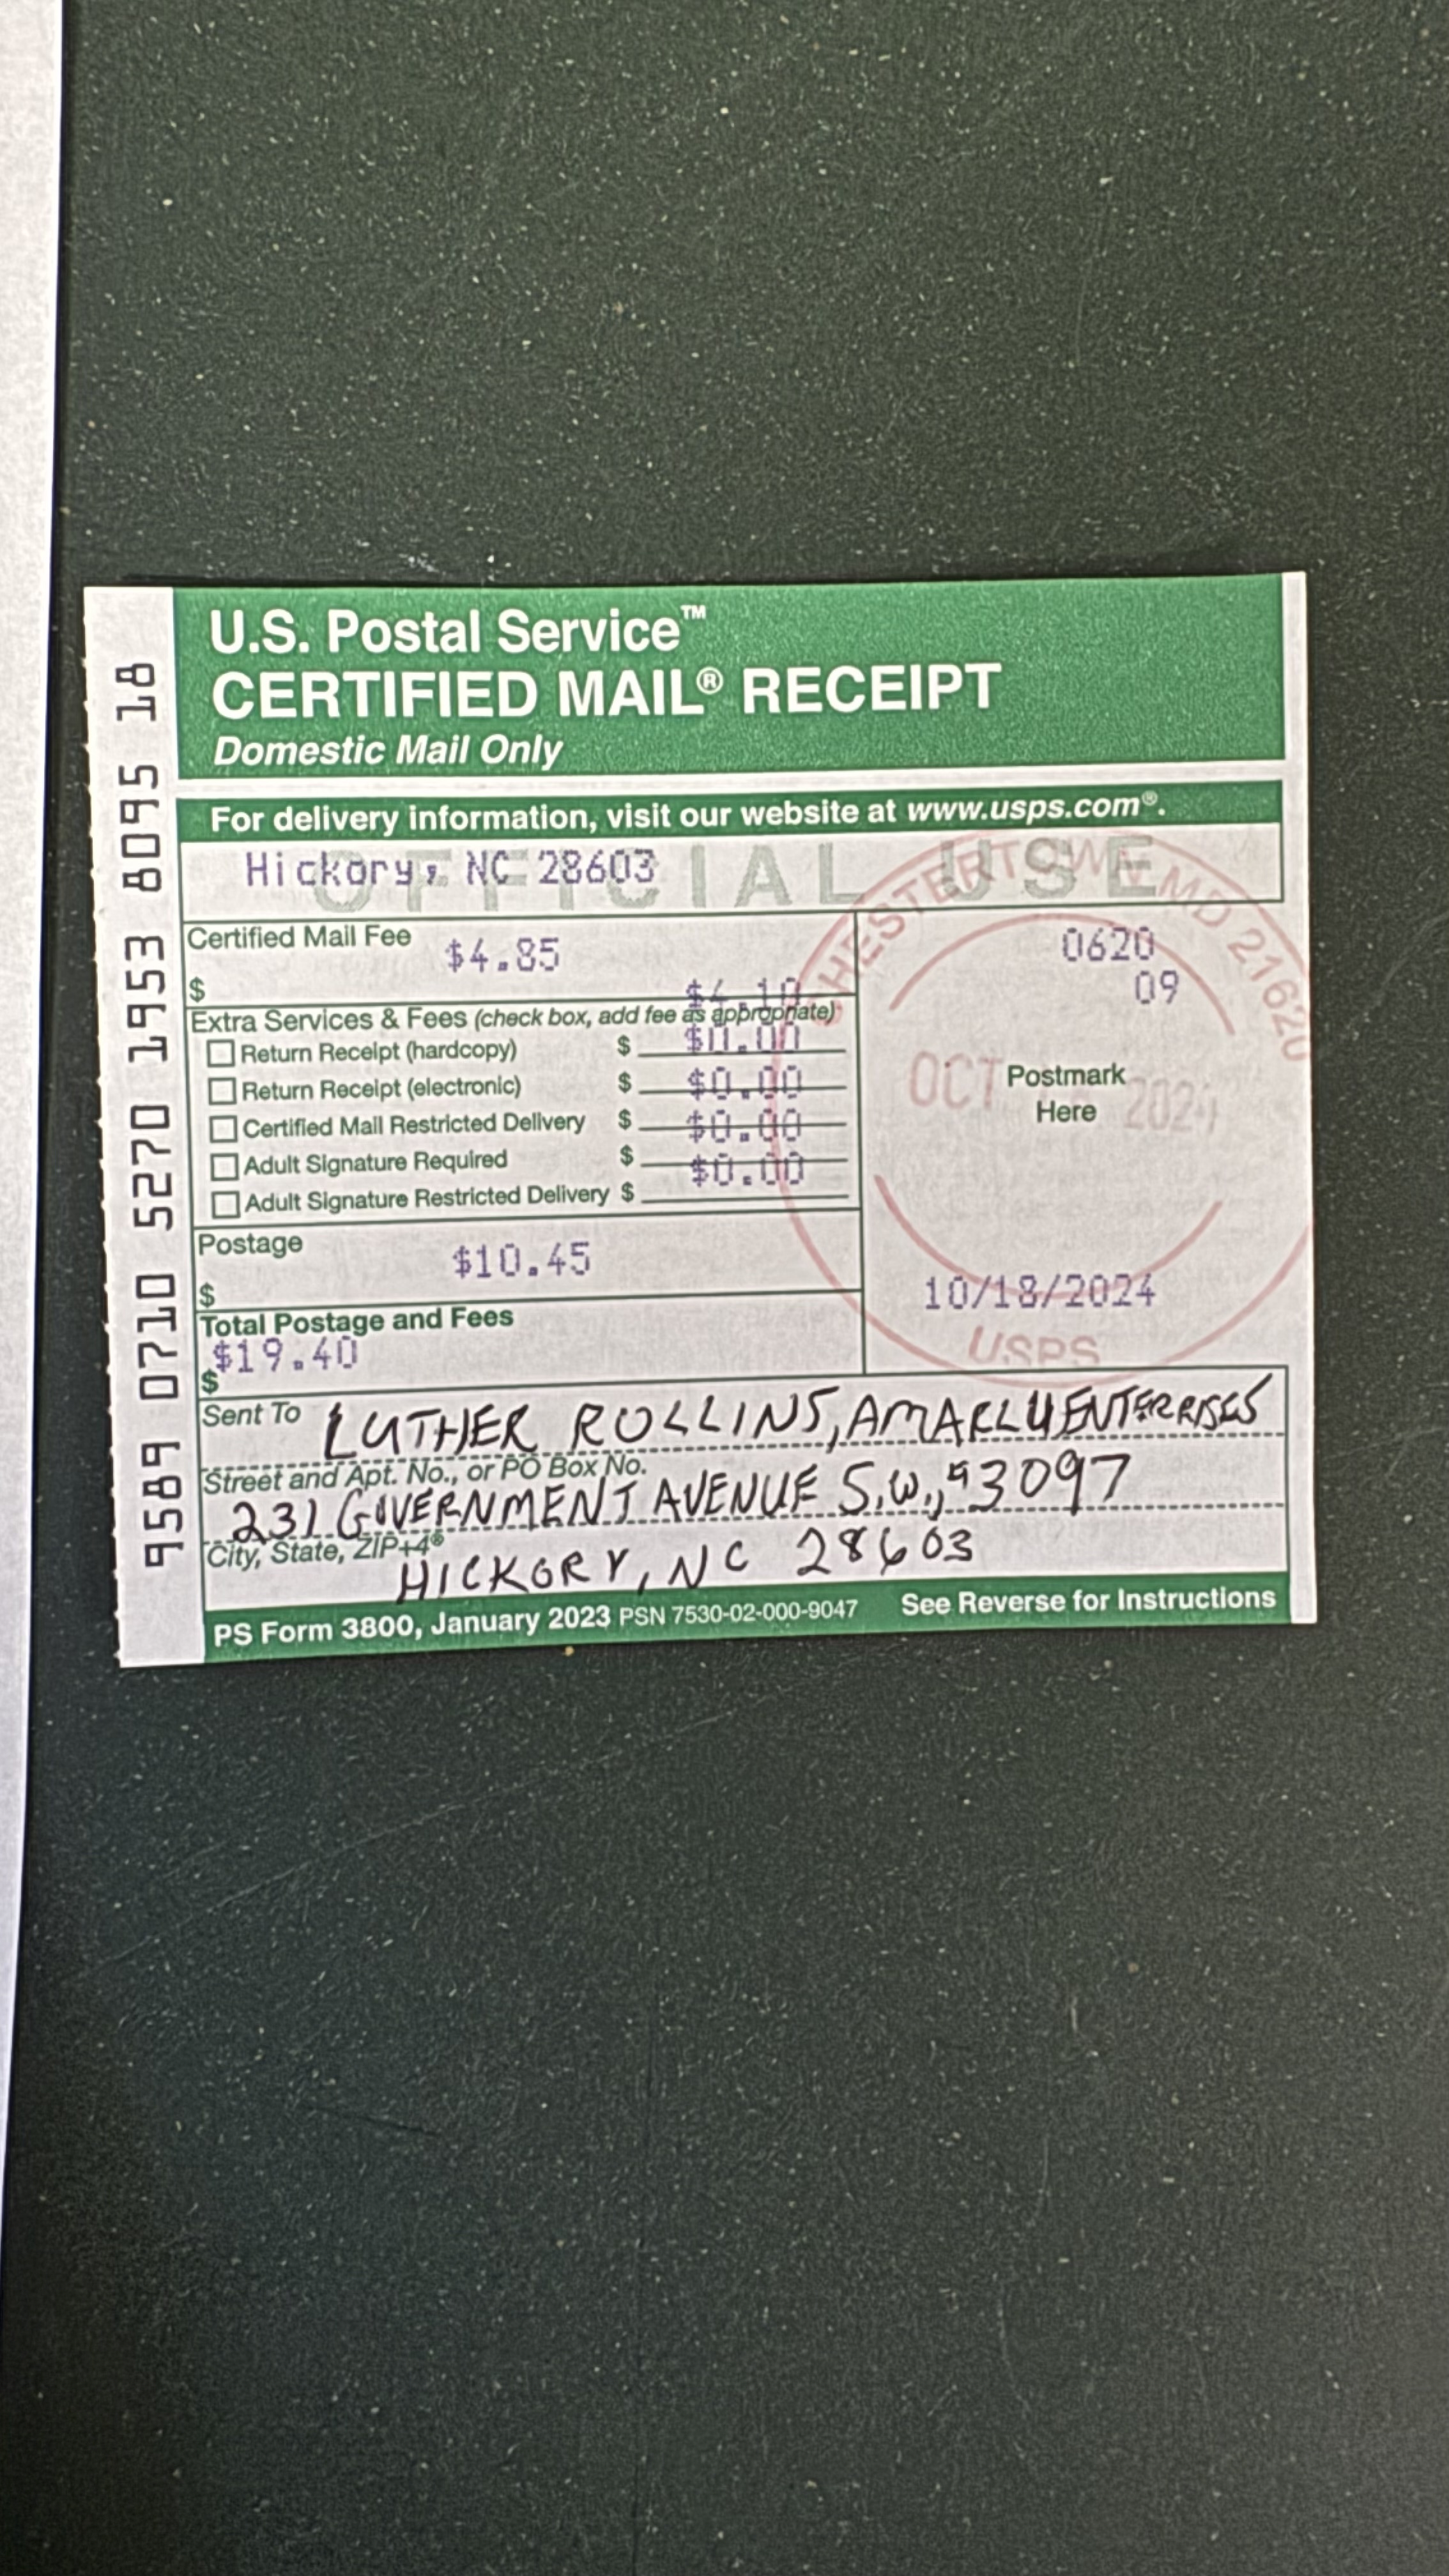 U.S. Postal Service™
CERTIFIED MAIL® RECEIPT
Domestic Mail Only
For delivery information, visit our website at www.usps.com®.
OFFICIAL USE
Hickory, NC 28603
Certified Mail Fee $4.85
$
$4.10
Extra Services & Fees (check box, add fee as appropriate)
Return Receipt (hardcopy) $ $0.00
Return Receipt (electronic) $ $0.00
Certified Mail Restricted Delivery $ $0.00
Adult Signature Required $ $0.00
Adult Signature Restricted Delivery $
Postage $10.45
$
Total Postage and Fees
$19.40
$
0620
09
Postmark
Here
10/18/2024
CHESTERTOWN MD 21620
OCT 2024
USPS
Sent To LUTHER ROLLINS, AMARLU ENTERRISES
Street and Apt. No., or PO Box No.
231 GOVERNMENT AVENUE S.W., #3097
City, State, ZIP+4®
HICKORY, NC 28603
PS Form 3800, January 2023 PSN 7530-02-000-9047 See Reverse for Instructions
9589 0710 5270 1953 8095 18